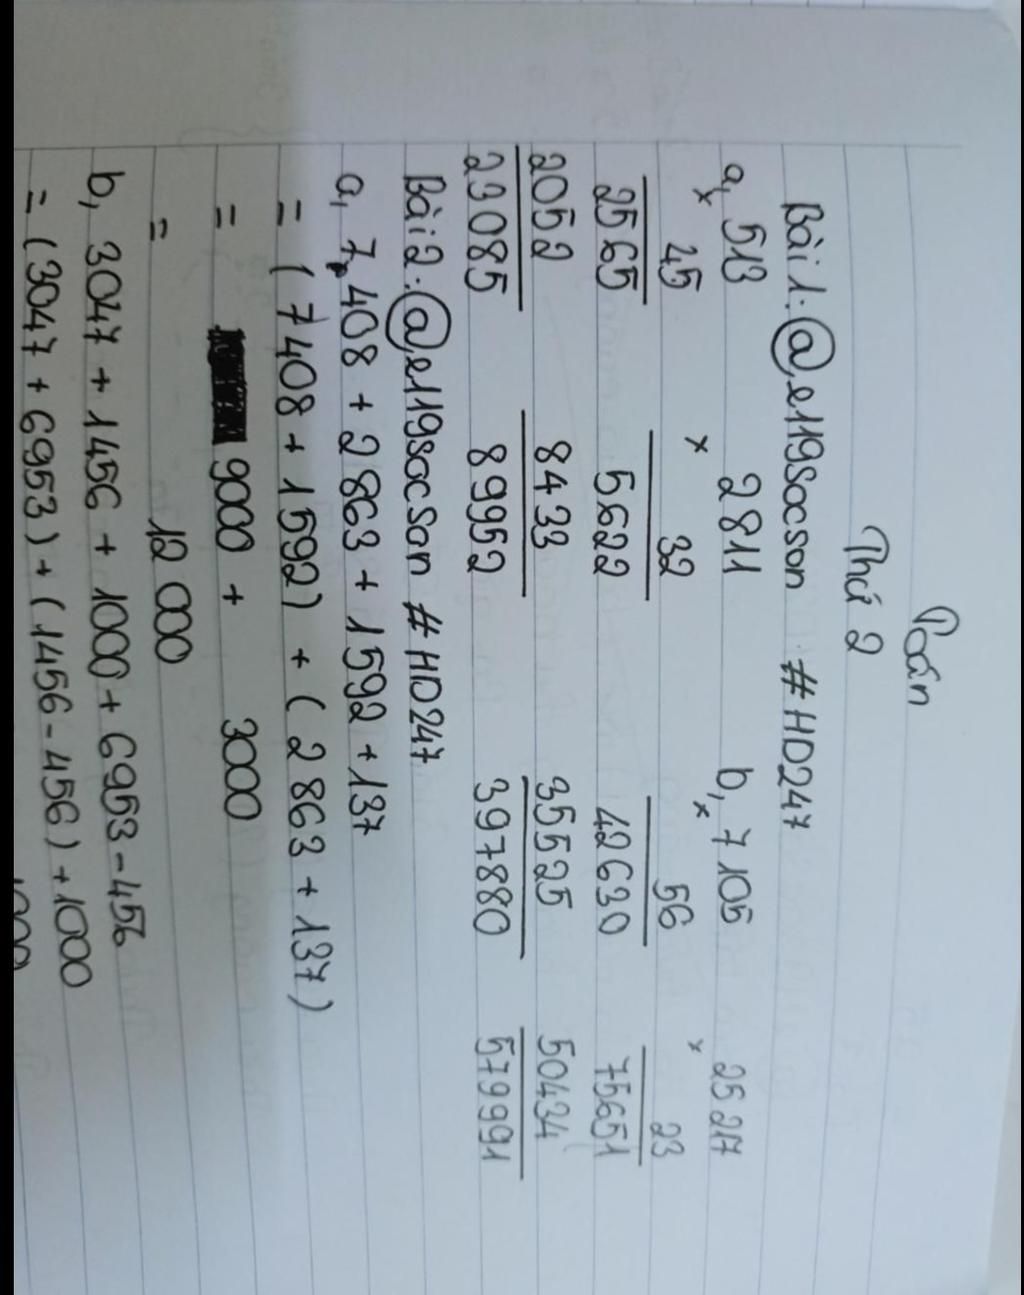 Toán
Thứ 2
Bài 1: @e119socson #HD247
a, 513 2811 b, 7105 25217
× 45 × 32 × 56 × 23
2565 5622 42630 75651
2052 8433 35525 50434
23085 89952 397880 579991
Bài 2: @e119socson #HD247
a, 7408 + 2863 + 1592 + 137
= (7408 + 1592) + (2863 + 137)
= 9000 + 3000
= 12000
b, 3047 + 1456 + 1000 + 6953 - 456
= (3047 + 6953) + (1456 - 456) + 1000